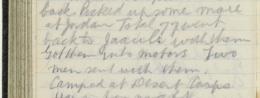 back Picked up some more
at Jordan Total 77 went
back to Jaavils with them
Got them into motors Two
men sent with them.
Camped at Desert Corps